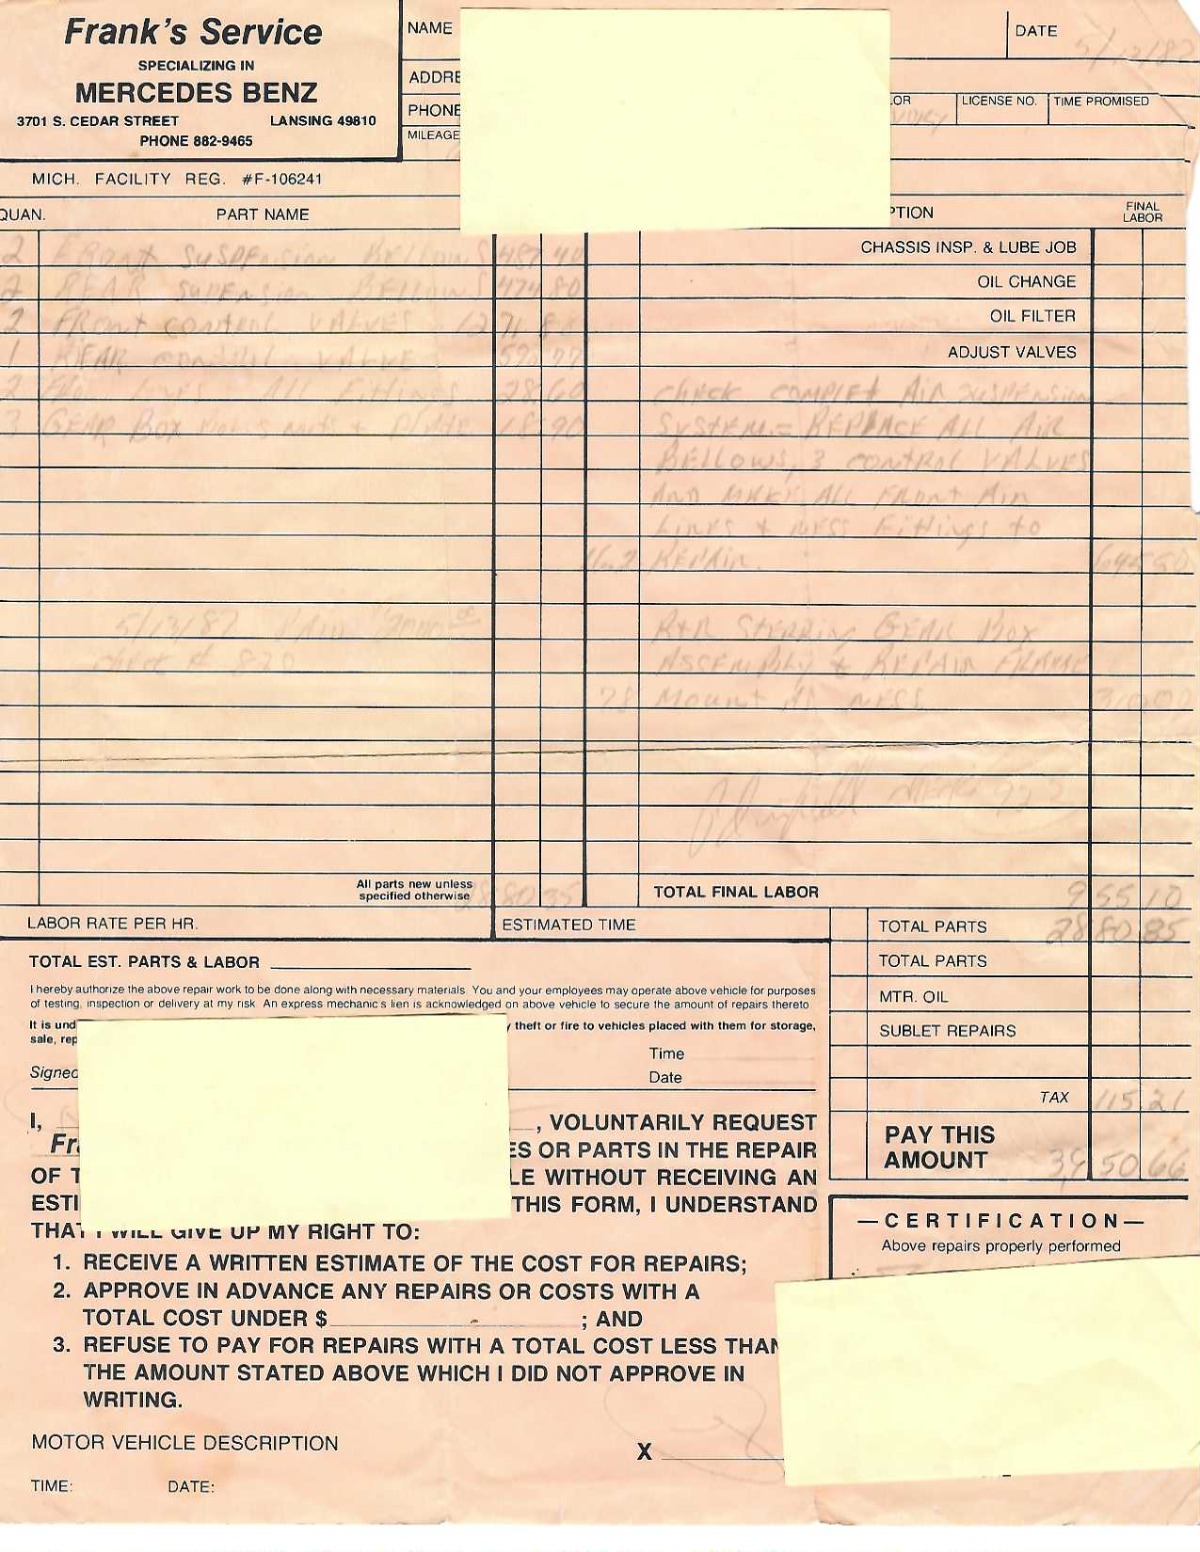 Frank's Service
SPECIALIZING IN
MERCEDES BENZ
3701 S. CEDAR STREET LANSING 49810
PHONE 882-9465
MICH. FACILITY REG. #F-106241
NAME
DATE 5/13/87
ADDRE
PHONE
LICENSE NO. TIME PROMISED
MILEAGE
QUAN. PART NAME
PTION FINAL LABOR
2 FRONT SUSPENSION BELLOWS 487 40
2 REAR SUPENSION BELLOWS 474 80
2 FRONT CONTROL VALVES 1271
1 REAR CONTROL VALVE
LINES ALL Fittings 28.60
3 GEAR BOX nuts + PLATE 18.90
CHASSIS INSP. & LUBE JOB
OIL CHANGE
OIL FILTER
ADJUST VALVES
CHECK COMPLET AIR SUSPENSION
SYSTEM = REPLACE ALL AIR
BELLOWS, 3 CONTROL VALVES
AND MAKE ALL FRONT AIR
LINES & NESS Fittings to
16.2 REPAIR. 645 50
5/13/87 PAID
Check #
R+R STEERRING GEAR BOX
ASSEMBLY & REPAIR FRAME
Mount AS NESS
All parts new unless
specified otherwise
TOTAL FINAL LABOR 955 10
LABOR RATE PER HR. ESTIMATED TIME
TOTAL PARTS 2880 85
TOTAL PARTS
MTR. OIL
SUBLET REPAIRS
TAX 115.21
PAY THIS
AMOUNT 3,950.66
TOTAL EST. PARTS & LABOR
I hereby authorize the above repair work to be done along with necessary materials. You and your employees may operate above vehicle for purposes
of testing, inspection or delivery at my risk. An express mechanic's lien is acknowledged on above vehicle to secure the amount of repairs thereto.
It is und y theft or fire to vehicles placed with them for storage,
sale, rep
Time
Signed
Date
I, , VOLUNTARILY REQUEST
Fr ES OR PARTS IN THE REPAIR
OF T LE WITHOUT RECEIVING AN
ESTI THIS FORM, I UNDERSTAND
THAT I WILL GIVE UP MY RIGHT TO:
1. RECEIVE A WRITTEN ESTIMATE OF THE COST FOR REPAIRS;
2. APPROVE IN ADVANCE ANY REPAIRS OR COSTS WITH A
TOTAL COST UNDER $ ; AND
3. REFUSE TO PAY FOR REPAIRS WITH A TOTAL COST LESS THAN
THE AMOUNT STATED ABOVE WHICH I DID NOT APPROVE IN
WRITING.
—CERTIFICATION—
Above repairs properly performed
MOTOR VEHICLE DESCRIPTION
X
TIME: DATE: